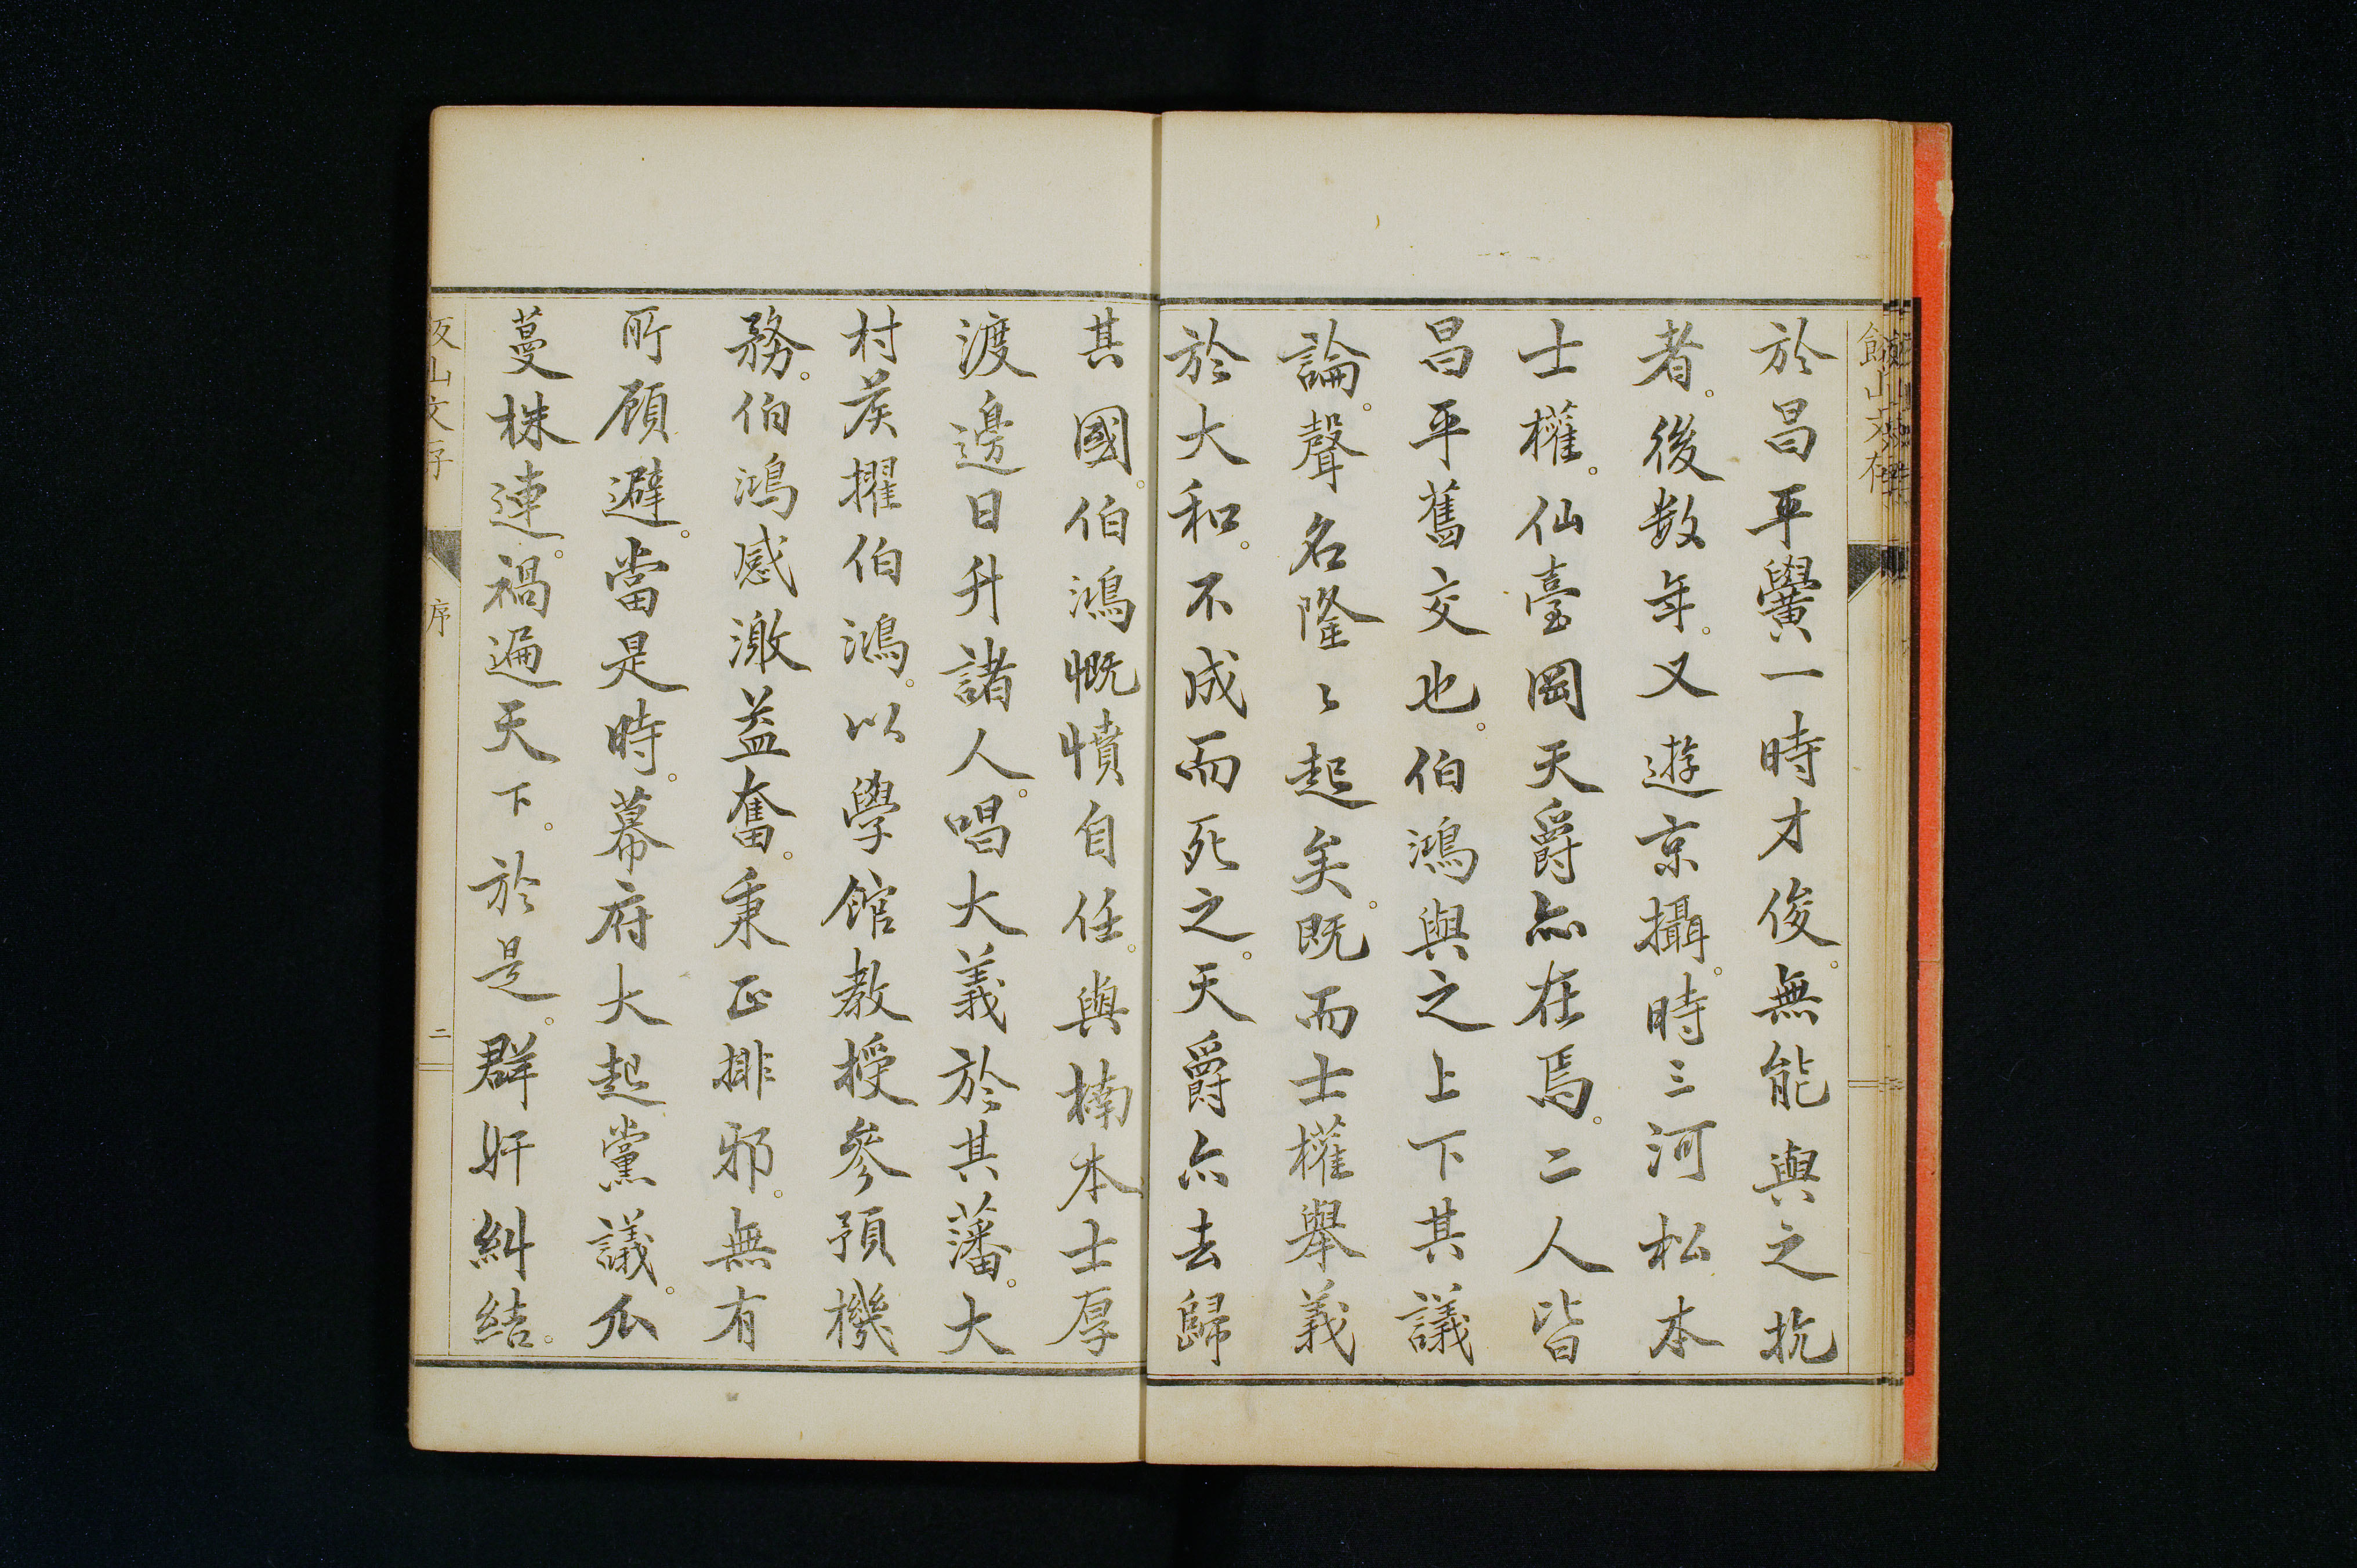 於昌平黌一時才俊。無能與之抗
者。後数年。又遊京攝。時三河松本
士權。仙臺岡天爵亦在焉。二人皆
昌平舊交也。伯鴻與之上下其議
論。聲名隆〻起矣。既而士權舉義
於大和。不成而死之。天爵亦去歸
其國。伯鴻慨憤自任。與楠本士厚
渡邊日升諸人。唱大義於其藩。大
村矦擢伯鴻。以學館教授參預機
務。伯鴻感激益奮。秉正排邪。無有
所顧避。當是時。幕府大起黨議。瓜
蔓株連。禍遍天下。於是。群奸糾結。
序
二